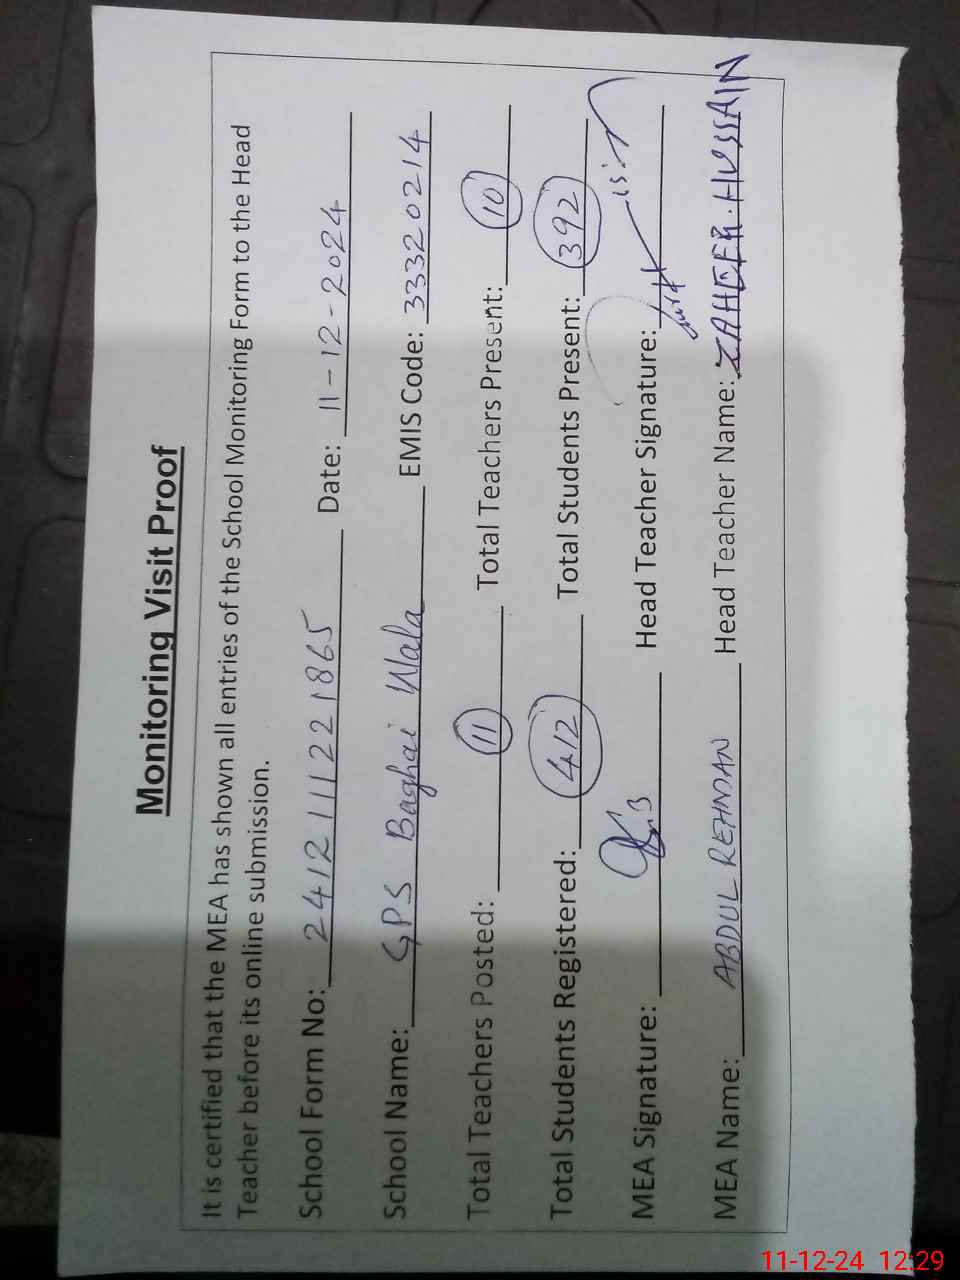 Monitoring Visit Proof
It is certified that the MEA has shown all entries of the School Monitoring Form to the Head
Teacher before its online submission.
School Form No: 241211122 1865 Date: 11-12-2024
School Name: GPS Baghai Wala EMIS Code: 33320214
Total Teachers Posted: 11 Total Teachers Present: 10
Total Students Registered: 412 Total Students Present: 392
MEA Signature: Head Teacher Signature:
MEA Name: ABDUL REHMAN Head Teacher Name: ZAHEER HUSSAIN
11-12-24 12:29